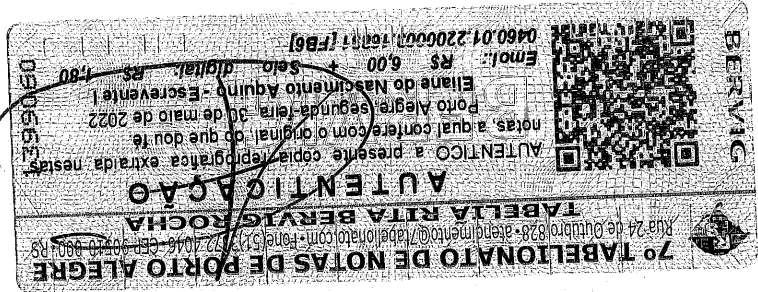 7º TABELIONATO DE NOTAS DE PORTO ALEGRE
Rua 24 de Outubro, 828 • atendimento@7tapoa.com • Fone (51) CEP RS
TABELIÃ RITA BERVIG ROCHA
AUTENTICAÇÃO
AUTENTICO a presente cópia reprográfica extraída nestas
notas, a qual confere com o original, do que dou fé
Porto Alegre, segunda-feira, 30 de maio de 2022
Eliane do Nascimento Aquino - Escrevente I
Emol.: R$ 6,00 + Selo digital: R$ 1,80
[FB6]
BERVIG